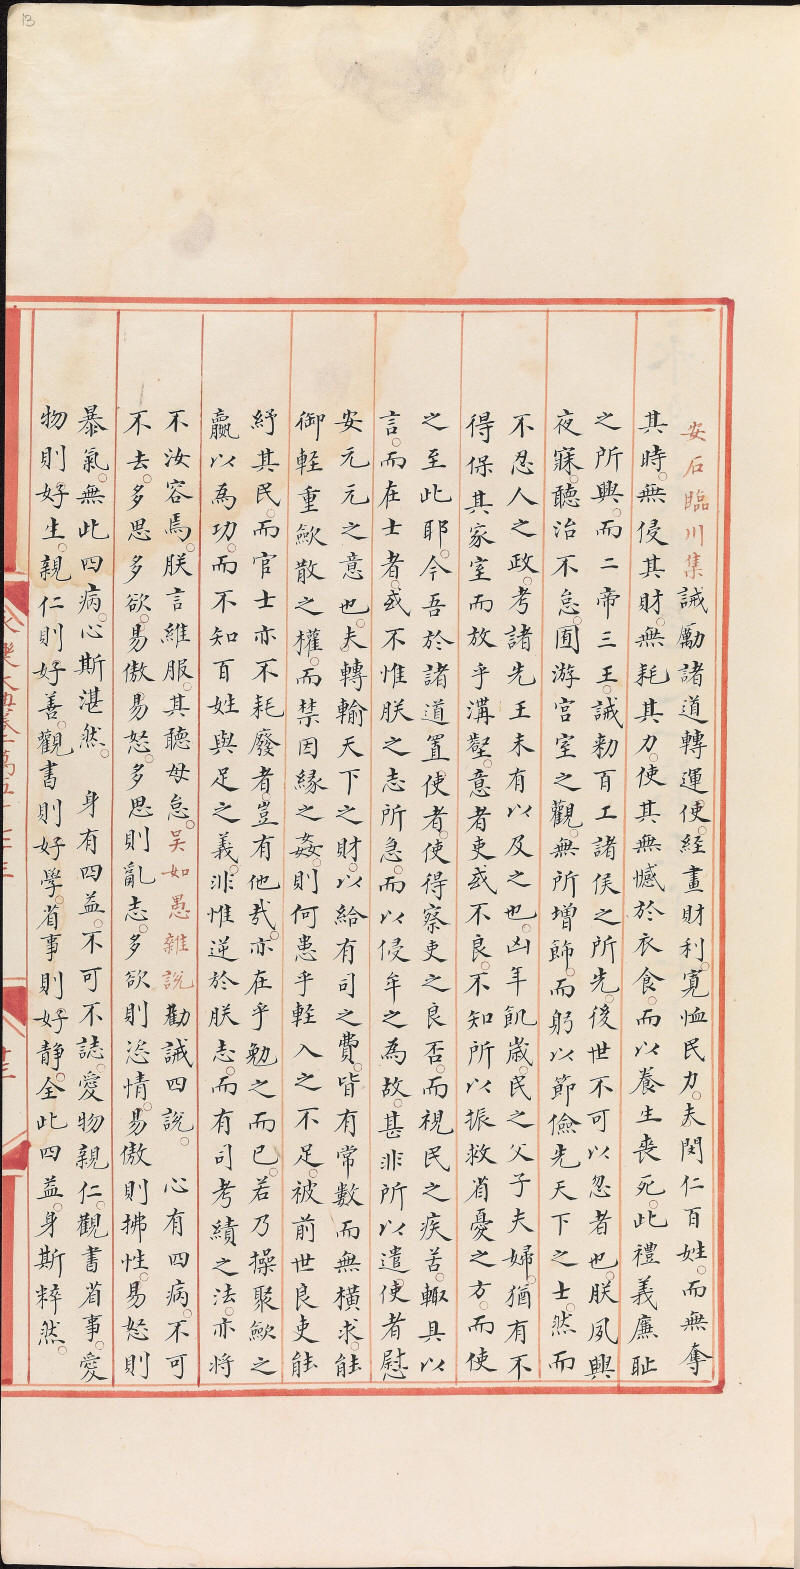 安石臨川集誡勵諸道轉運使。經畫財利。寛恤民力。夫閔仁百姓。而無奪
其時。無侵其財。無耗其力。使其無憾於衣食。而以養生喪死。此禮義廉耻
之所興。而二帝三王。誡勑百工諸侯之所先。後世不可以忽者也。朕夙興
夜寐。聽治不怠。囿游宫室之觀。無所増飾。而躬以節儉先天下之士。然而
不忍人之政。考諸先王未有以及之也。凶年飢歲。民之父子夫婦。猶有不
得保其家室而放乎溝壑。意者吏或不良。不知所以振救省憂之方。而使
之至此耶。今吾於諸道置使者。使得察吏之良否。而視民之疾苦。輙具以
言。而在士者。或不惟朕之志所急。而以侵牟之為故。甚非所以遣使者慰
安元元之意也。夫轉輸天下之財。以給有司之費。皆有常數而無橫求。能
御軽重歛散之權。而禁因縁之姦。則何患乎軽入之不足。被前世良吏能
紓其民。而官士亦不耗廢者。豈有他㢤。亦在乎勉之而已。若乃操聚歛之
贏以為功。而不知百姓與足之義。非惟逆於朕志。而有司考績之法。亦將
不汝容焉。朕言維服。其聽毋怠。吳如愚雜說勸誡四說。 心有四病。不可
不去。多思多欲。易傲易怒。多思則亂志。多欲則恣情。易傲則拂性。易怒則
暴氣。無此四病。心斯湛然。 身有四益。不可不誌。愛物親仁。觀書省事。愛
物則好生。親仁則好善。觀書則好學。省事則好静。全此四益。身斯粹然。
永樂大典卷一萬五千七十三
十三
13